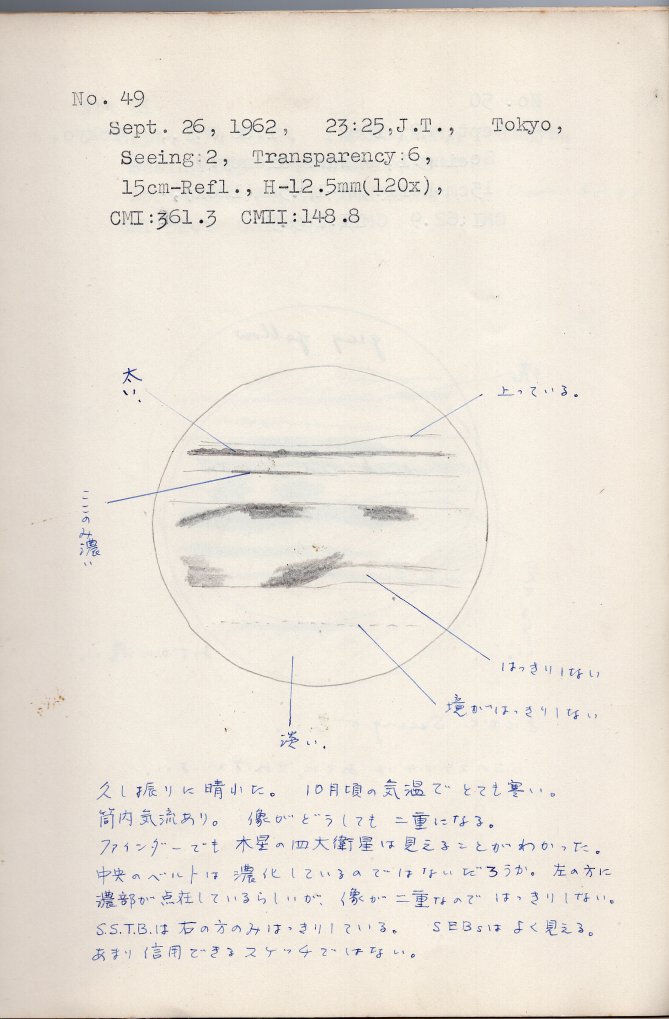 No. 49
Sept. 26, 1962, 23:25,J.T., Tokyo,
Seeing:2, Transparency:6,
15cm-Refl., H-12.5mm(120x),
CMI:361.3 CMII:148.8
太い.
上っている。
ここのみ濃い
はっきりしない
境がはっきりしない
淡い.
久し振りに晴れた。 10月頃の気温でとても寒い。
筒内気流あり。 像がどうしても二重になる。
ファインダーでも木星の四大衛星は見えることがわかった。
中央のベルトは濃化しているのではないだろうか。左の方に
濃部が点在しているらしいが、像が二重なのではっきりしない。
S.S.T.B.は右の方のみはっきりしている。 SEBsはよく見える。
あまり信用できるスケッチではない。